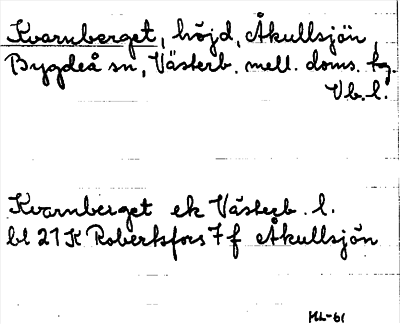 Kvarnberget, höjd, Åkullsjön,
Bygdeå sn, Västerb. mell. doms. tg.
Vb. l.
Kvarnberget ek Västerb. l.
bl 21 K Robertsfors 7 f Åkullsjön
HL-61